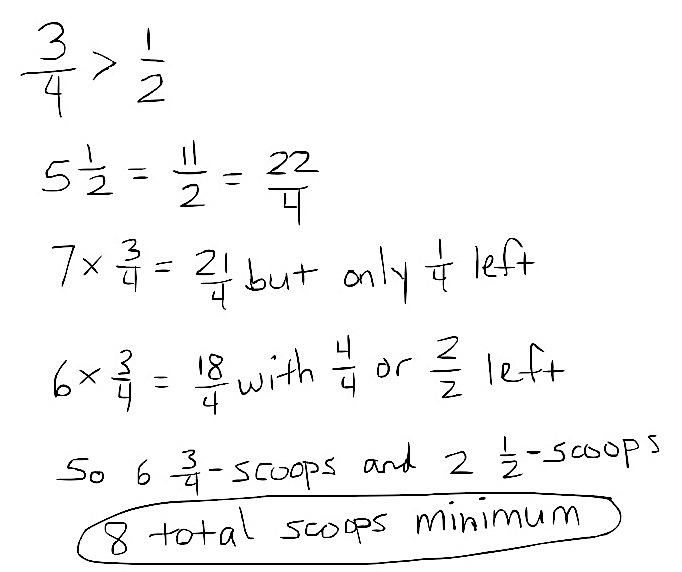 3/4 > 1/2
5 1/2 = 11/2 = 22/4
7 × 3/4 = 21/4 but only 1/4 left
6 × 3/4 = 18/4 with 4/4 or 2/2 left
So 6 3/4-scoops and 2 1/2-scoops
8 total scoops minimum